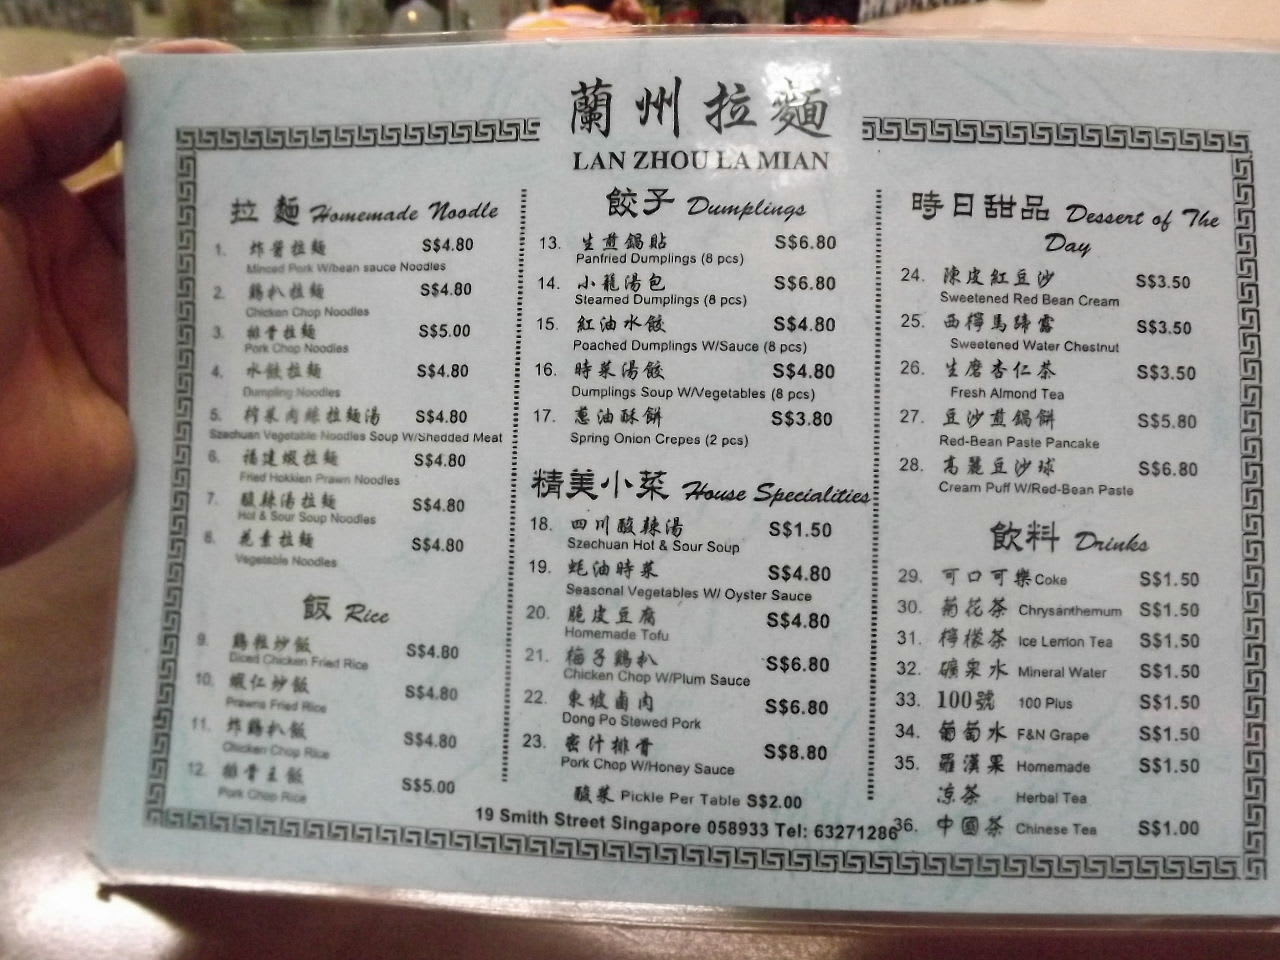 蘭州拉麵
LAN ZHOU LA MIAN
拉麵 Homemade Noodle
1. 炸醬拉麵 S$4.80
Minced Pork W/bean sauce Noodles
2. 鷄扒拉麵 S$4.80
Chicken Chop Noodles
3. 排骨拉麵 S$5.00
Pork Chop Noodles
4. 水餃拉麵 S$4.80
Dumpling Noodles
5. 榨菜肉絲拉麵湯 S$4.80
Szechuan Vegetable Noodles Soup W/Shedded Meat
6. 福建蝦拉麵 S$4.80
Fried Hokkien Prawn Noodles
7. 酸辣湯拉麵 S$4.80
Hot & Sour Soup Noodles
8. 羔素拉麵 S$4.80
Vegetable Noodles
飯 Rice
9. 鷄粒炒飯 S$4.80
Diced Chicken Fried Rice
10. 蝦仁炒飯 S$4.80
Prawns Fried Rice
11. 炸鷄扒飯 S$4.80
Chicken Chop Rice
12. 排骨主飯 S$5.00
Pork Chop Rice
餃子 Dumplings
13. 生煎鍋貼 S$6.80
Panfried Dumplings (8 pcs)
14. 小籠湯包 S$6.80
Steamed Dumplings (8 pcs)
15. 紅油水餃 S$4.80
Poached Dumplings W/Sauce (8 pcs)
16. 時菜湯餃 S$4.80
Dumplings Soup W/Vegetables (8 pcs)
17. 蔥油酥餅 S$3.80
Spring Onion Crepes (2 pcs)
精美小菜 House Specialities
18. 四川酸辣湯 S$1.50
Szechuan Hot & Sour Soup
19. 蚝油時菜 S$4.80
Seasonal Vegetables W/ Oyster Sauce
20. 脆皮豆腐 S$4.80
Homemade Tofu
21. 梅子鷄扒 S$6.80
Chicken Chop W/Plum Sauce
22. 東坡鹵肉 S$6.80
Dong Po Stewed Pork
23. 蜜汁排骨 S$8.80
Pork Chop W/Honey Sauce
酸菜 Pickle Per Table S$2.00
時日甜品 Dessert of The
Day
24. 陳皮紅豆沙 S$3.50
Sweetened Red Bean Cream
25. 西檸馬蹄露 S$3.50
Sweetened Water Chestnut
26. 生磨杏仁茶 S$3.50
Fresh Almond Tea
27. 豆沙煎鍋餅 S$5.80
Red-Bean Paste Pancake
28. 高麗豆沙球 S$6.80
Cream Puff W/Red-Bean Paste
飲料 Drinks
29. 可口可樂 Coke S$1.50
30. 菊花茶 Chrysanthemum S$1.50
31. 檸檬茶 Ice Lemon Tea S$1.50
32. 礦泉水 Mineral Water S$1.50
33. 100號 100 Plus S$1.50
34. 葡萄水 F&N Grape S$1.50
35. 羅漢果 Homemade S$1.50
凉茶 Herbal Tea
36. 中國茶 Chinese Tea S$1.00
19 Smith Street Singapore 058933 Tel: 63271286